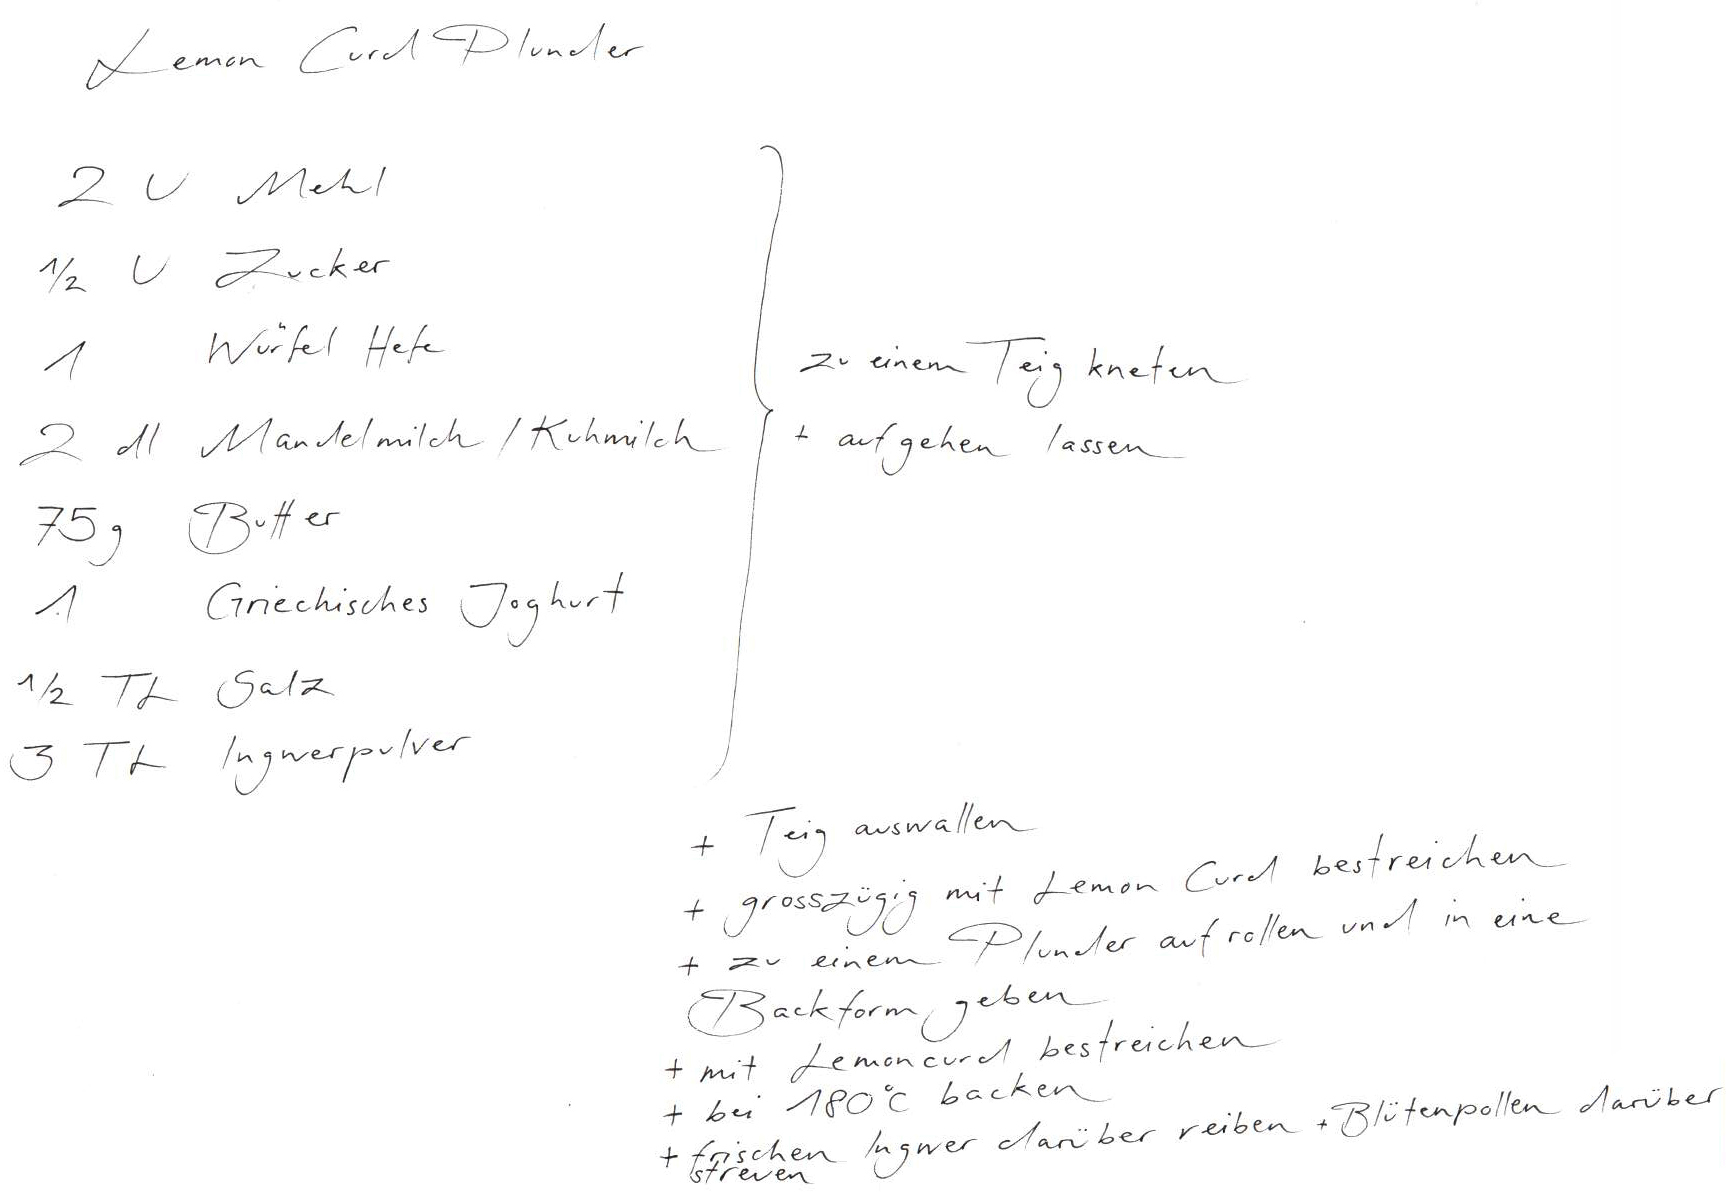 Lemon Curd Plunder
2 U Mehl
1/2 U Zucker
1 Würfel Hefe
2 dl Mandelmilch / Kuhmilch
75g Butter
1 Griechisches Joghurt
1/2 TL Salz
3 TL Ingwerpulver
zu einem Teig kneten
+ aufgehen lassen
+ Teig auswallen
+ grosszügig mit Lemon Curd bestreichen
+ zu einem Plunder aufrollen und in eine
Backform geben
+ mit Lemoncurd bestreichen
+ bei 180°C backen
+ frischen Ingwer darüber reiben + Blütenpollen darüber
streuen